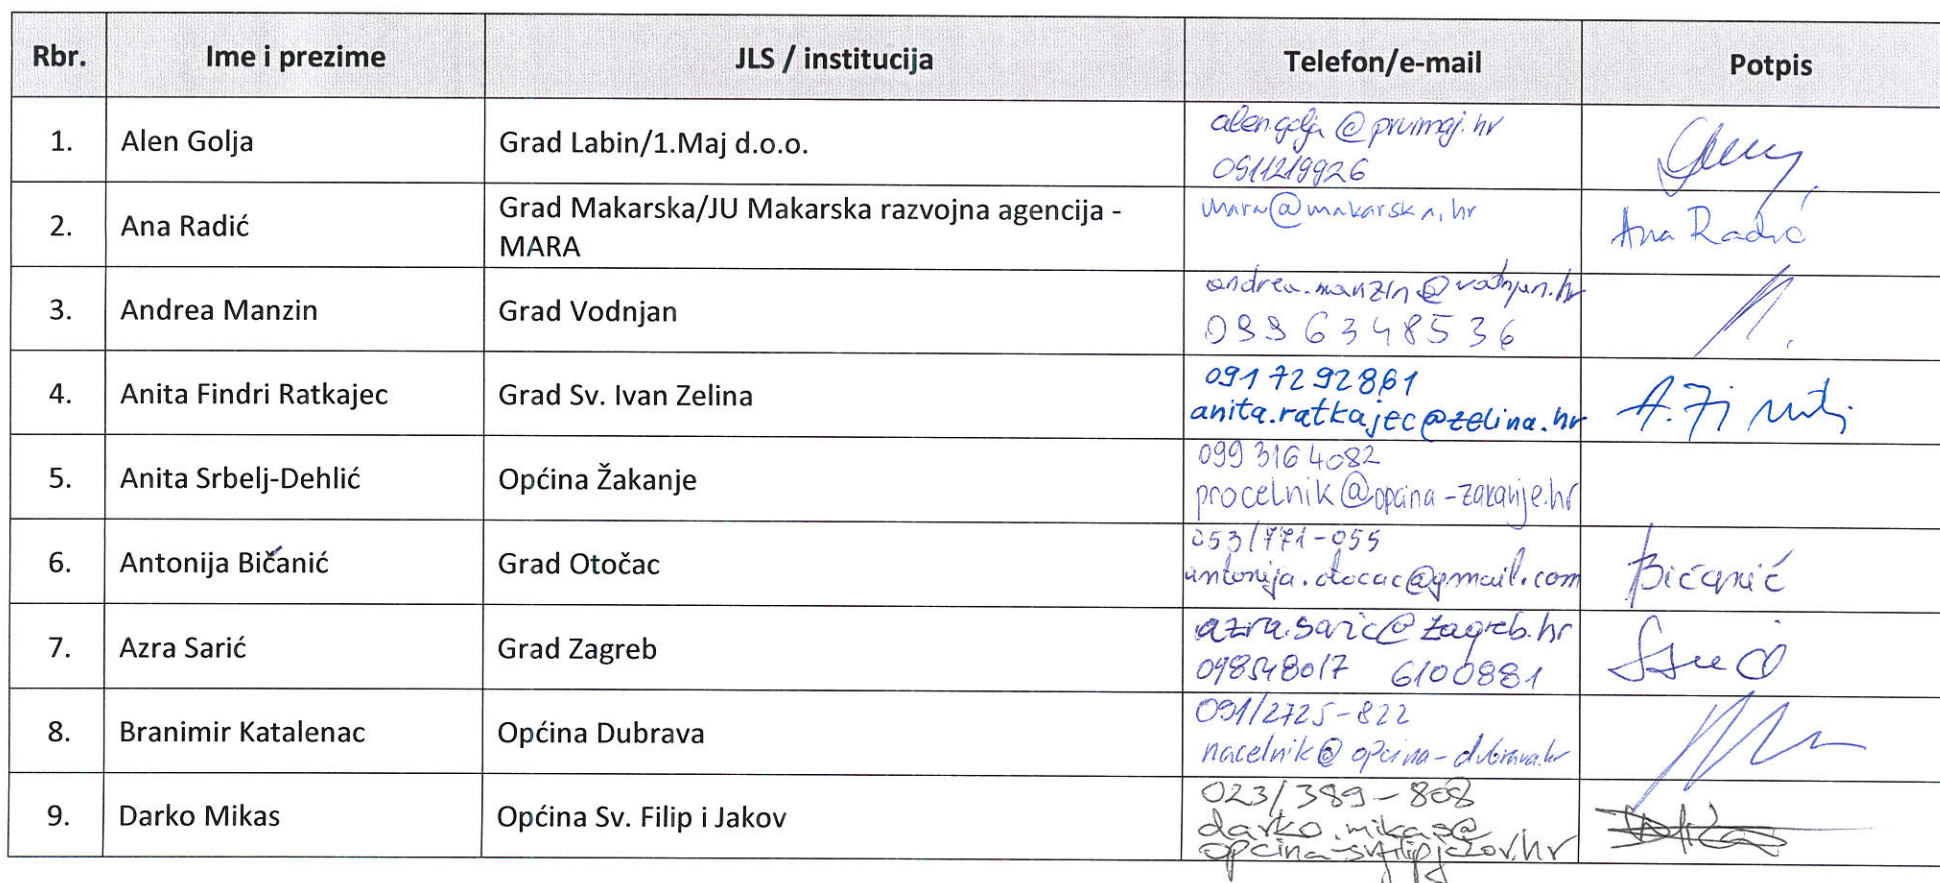 Rbr. Ime i prezime JLS / institucija Telefon/e-mail Potpis
1. Alen Golja Grad Labin/1.Maj d.o.o. alen.golja@prvimaj.hr
0911219926
2. Ana Radić Grad Makarska/JU Makarska razvojna agencija -
MARA mara@makarska.hr Ana Radić
3. Andrea Manzin Grad Vodnjan andrea.manzin@vodnjan.hr
099 6348536
4. Anita Findri Ratkajec Grad Sv. Ivan Zelina 091 7292861
anita.ratkajec@zelina.hr
5. Anita Srbelj-Dehlić Općina Žakanje 099 316 4082
procelnik@opcina-zakanje.hr
6. Antonija Bičanić Grad Otočac 053/771-055
antonija.otocac@gmail.com Bičanić
7. Azra Sarić Grad Zagreb azra.saric@zagreb.hr
098548017 6100881
8. Branimir Katalenac Općina Dubrava 091/2725-822
nacelnik@opcina-dubrava.hr
9. Darko Mikas Općina Sv. Filip i Jakov 023/389-808
darko.mikas@
opcina-svfilipjakov.hr